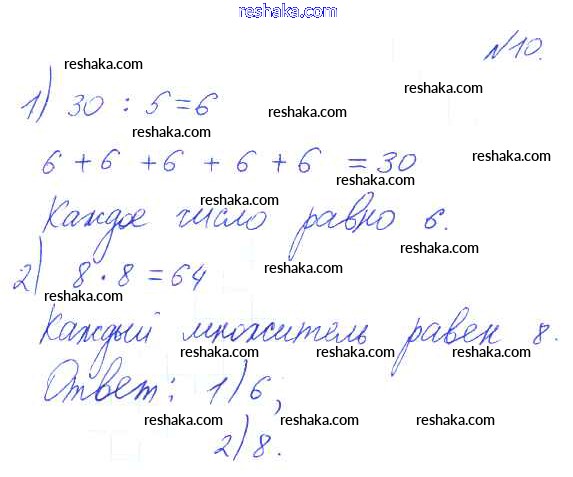 reshaka.com
№10.
reshaka.com
reshaka.com
1) 30 : 5 = 6
reshaka.com
reshaka.com
6 + 6 + 6 + 6 + 6 = 30
reshaka.com
reshaka.com
reshaka.com
Каждое число равно 6.
reshaka.com
2) 8 · 8 = 64
reshaka.com
reshaka.com
Каждый множитель равен 8.
reshaka.com reshaka.com reshaka.com
Ответ: 1) 6;
reshaka.com reshaka.com reshaka.com
2) 8.